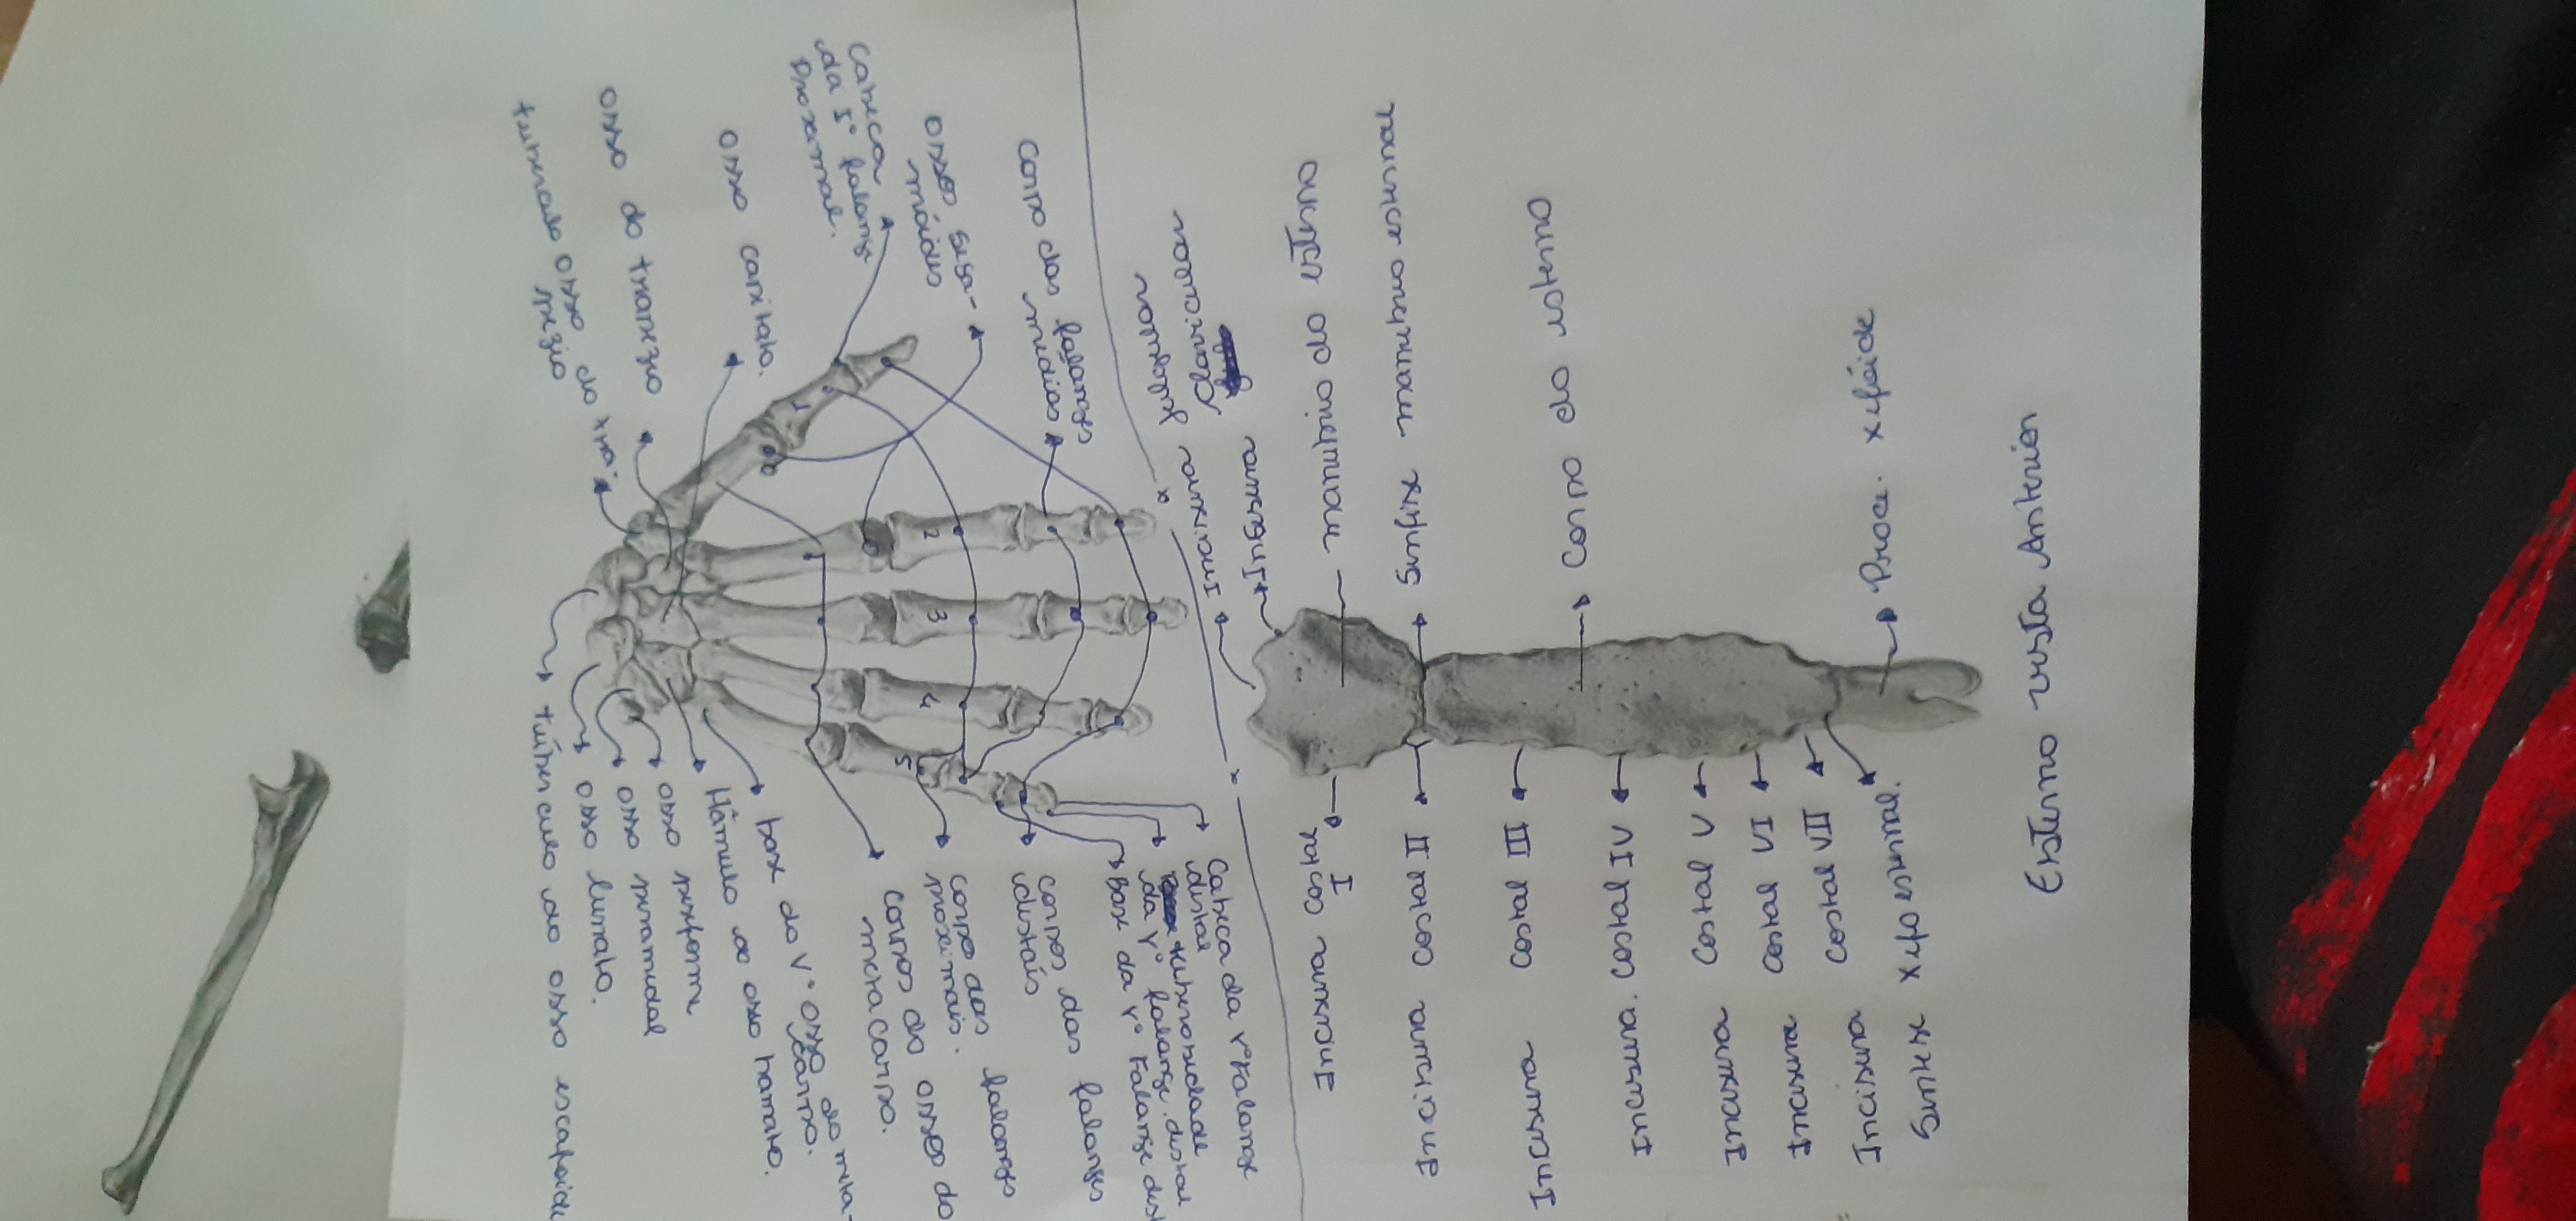 tubérculo osso do tra-
pézio
osso do trapézio
osso capitato.
Cabeça
da I° falange
Proximal.
ossos sesa-
móides
corpo das falanges
médias
1
2
3
4
5
tubérculo do osso escafoide
osso lunato.
osso piramidal
osso pisiforme
Hâmulo do osso hamato.
base do V° osso do meta-
carpo.
corpos do ossos do
metacarpo.
corpo das falanges
proximais.
corpos das falanges
distais
Base da V° Falange dis
tuberosidade
da V° falange distal
Cabeça da V° falange
distal
Incisura jugular
Incisura
Clavicular
manubrio do esterno
Sinfise manubrio esternal
corpo do esterno
Proce. xifóide
Incisura costal
I
Incisura costal II
Incisura costal III
Incisura. costal IV
Incisura costal V
Incisura costal VI
Incisura costal VII
Sinfise xifo esternal.
Esterno vista Anterior